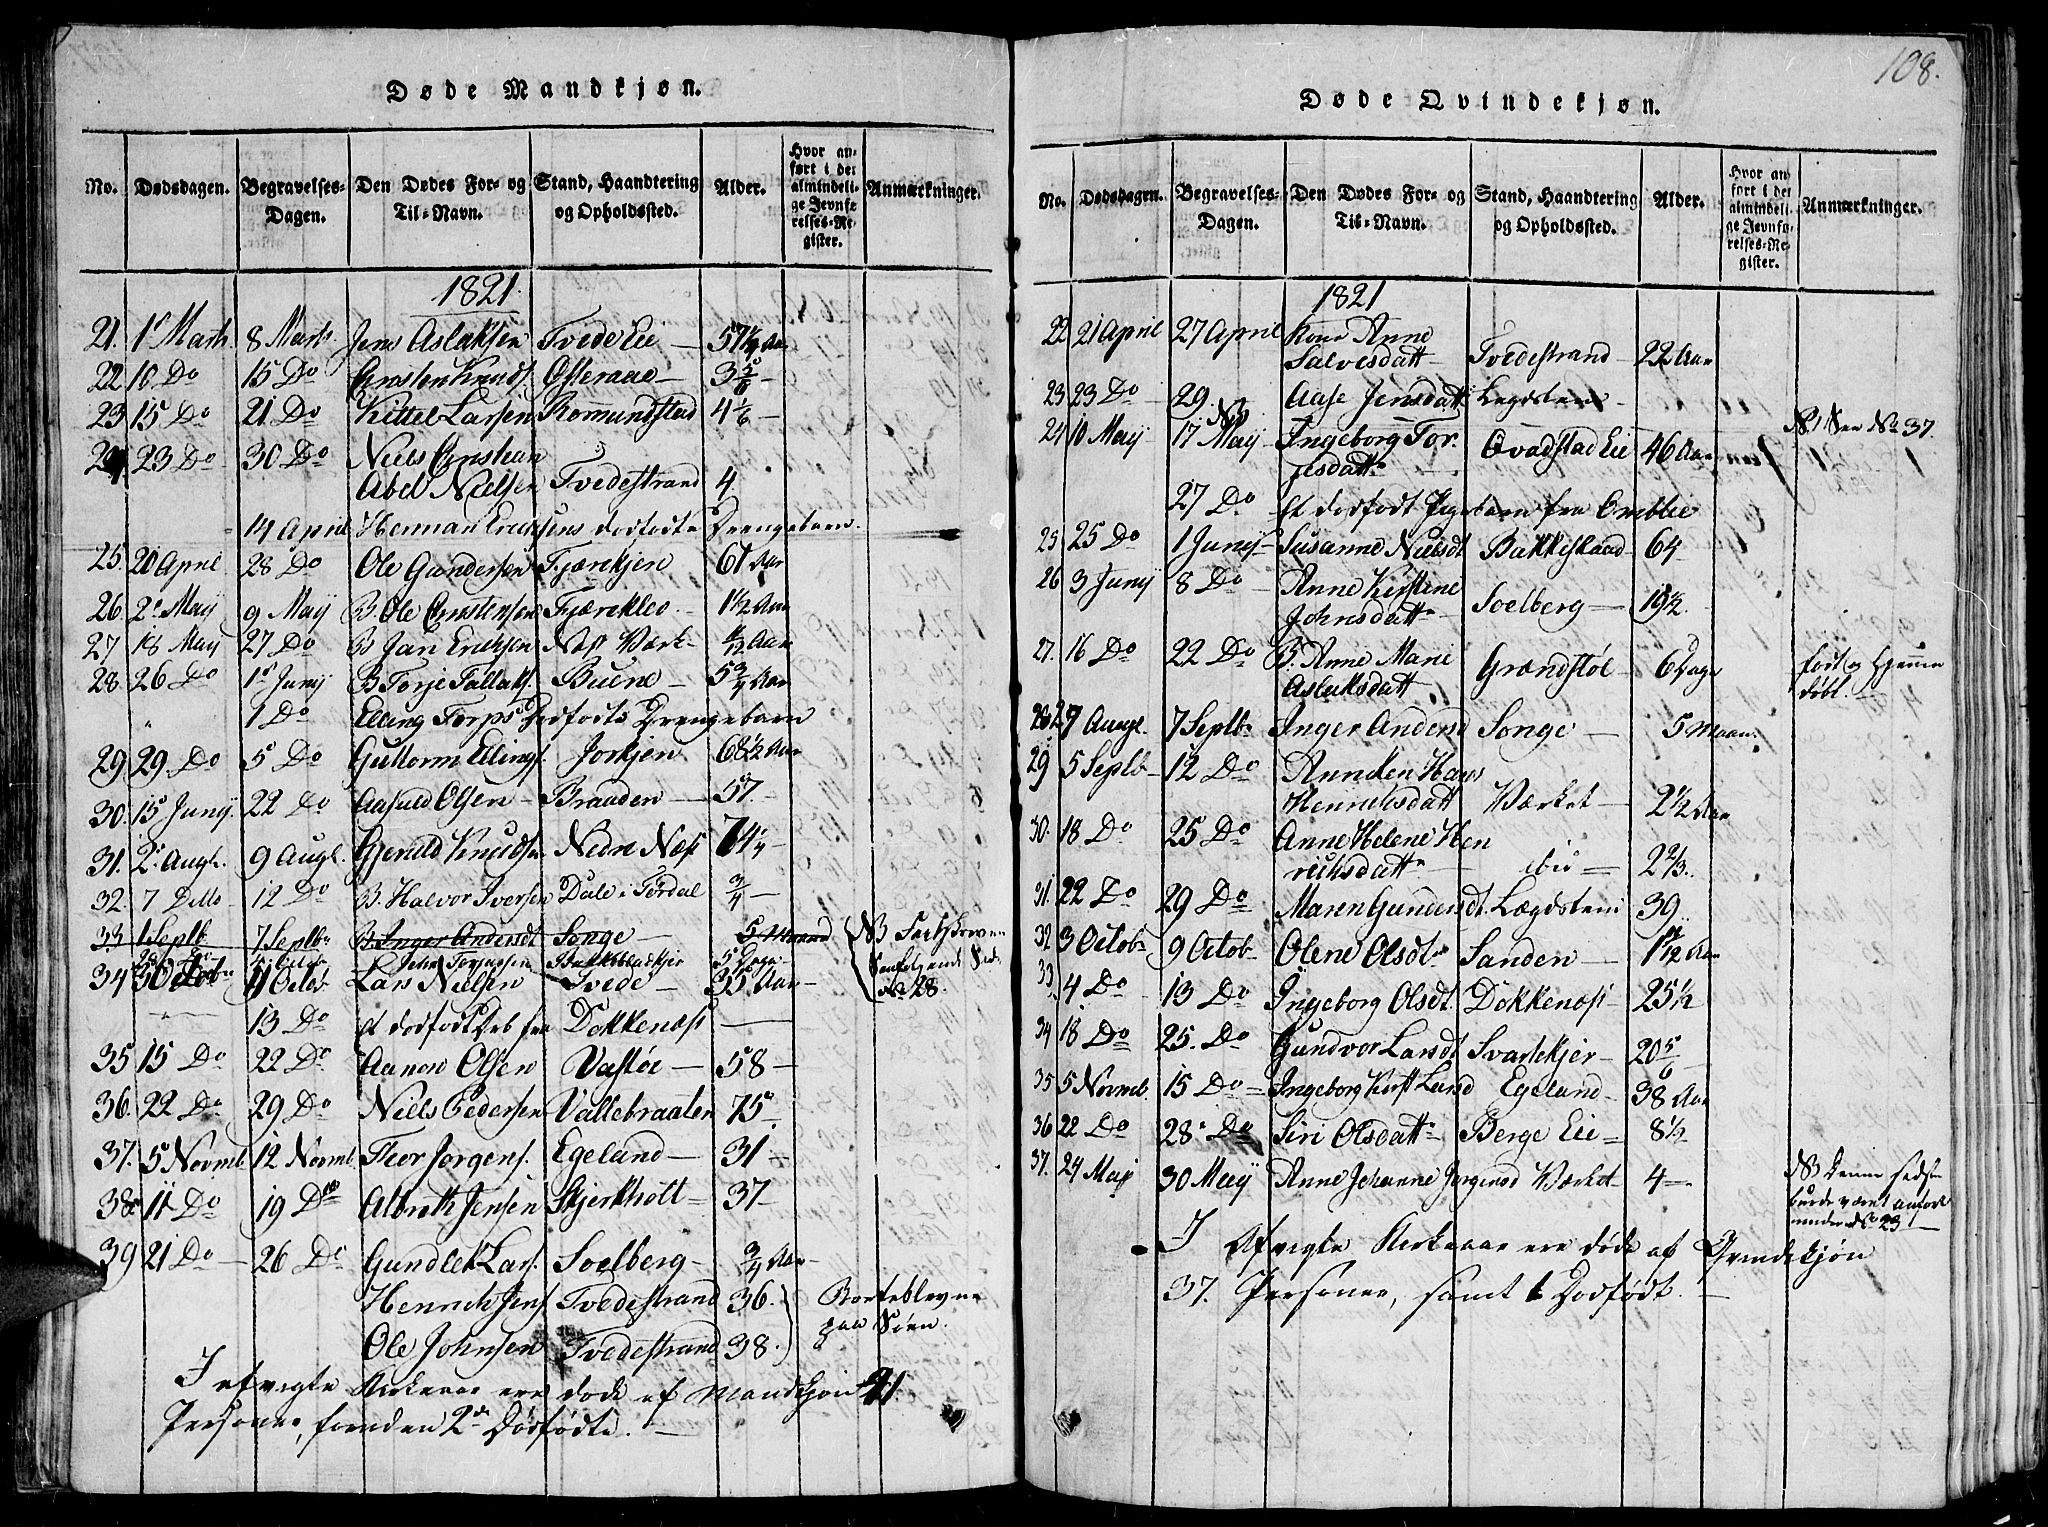 Døde Mandkjøn.
No. Dødsdagen. Begravelses-Dagen. Den Dødes For- og Til-Navn. Stand, Haandtering og Opholdssted. Alder. Hvor anført i det almindelige Jevnførelses-Register. Anmærkninger.
1821.
21. 1 Marts 8 Marts Jens Aslaksen Tvede Eie 57½ Aar
22 10 Do 15 Do Christen Knuds. Osteraae 3 5/6
23 15 Do 21 Do Kittel Larsen Romundstad 4 1/6
24 23 Do 30 Do Niels Christian
Abel Nielsen Tvedestrand 4
14 April Herman Ericksens dødfødte Drengebarn.
25. 20 April 28 Do Ole Gundersen Fjærekjen 61 Aar
26. 2 Maij 9 Maij B. Ole Christensen Fjærekleo 1½ Aar
27 18 Maij 27 Do B Jan Ericksen Næs Værk
28 26 Do 1 Junij B Torje Tallaks. Buene 5¾ Aar
1 Do Elling Torps Dødfødte Drengebarn
29 29 Do 5 Do Guttorm Ellings. Jorkjen 68½ Aar
30. 15 Junij 22 Do Aasuld Olsen Braaden 57.
31. 2 Augl. 9 Augl. Gjeruld Knudsen Nedre Næs 74¼
32. 7 Ditto 12 Do B. Halvor Iversen Dale i Tørdal ¾
33 1 Septb 7 Septbr B. Inger Andersdt Songe 5 Maaned NB Forskreven
Jens Torgessen 5 Dage
34 3 Octob 11 Octob Lars Nielsen Tvede 35 Aar No 28.
13 Do et dødfødt fra Dokkenæs
35 15 Do 22 Do Aanon Olsen Vastøe 58
36. 22 Do 29 Do Niels Pedersen Vallebraaten 75
37. 5 Novmb. 12 Novmb. Peer Jørgens. Egeland 31
38 11 Do 19 Do Albreth Jensen Skjerkholt 37
39 21 Do 26 Do Gundlek Lars. Soelberg ¾ Aar
Henrich Jens. Tvedestrand 36. Borteblevne
Ole Johnsen Tvedestrand 38. paa Søen.
I afvigte Kirkeaar ere døde af Mandkjøn 41
Personer, foruden 2de Dødfødte.
108.
Døde Qvindekjøn.
No. Dødsdagen. Begravelses-Dagen. Den Dødes For- og Til-Navn. Stand, Haandtering og Opholdssted. Alder. Hvor anført i det almindelige Jevnførelses-Register. Anmærkninger.
1821
22 21 April 27 April Kone Anne
Salvesdatt Tvedestrand 22 Aar
23 23 Do 29 Aase Jensdatt Legdslem
NB NB See No 37.
24 10 Maij 17 Maij Ingeborg Tor-
jesdatt Qvadstad Eie 46 Aar
27 Do Et dødfødt Pigebarn fra Omblie
25 25 Do 1 Junij Susanne Nielsdt Bakkeskaad 64
26 3 Junij 8 Do Anne Kirstine
Johnsdatt Soelberg 19½
27. 16 Do 22 Do B. Anne Marie
Aslaksdatt Grændstøl 6 Dage født og Hjemmedøbt.
28 27 Augl. 7 Septbr Inger Andersd Songe 5 Maan.
29 5 Septb 12 Do Anneken Hans
Henrichsdatt Værket 2½ Aar
30. 18 Do 25 Do Anne Helene Hen
richsdatt ibid 2 2/3.
31. 22 Do 29 Do Maren Gundersdt. Lægdslem 39
32 3 Octob 9 Octob Olene Olsdt Sanden 1½ Aar
33 4 Do 13 Do Ingeborg Olsdt. Dokkenæs 25½
34 18 Do 25. Do Gundvor Larsdt Svartekjer 20 5/6
35 5 Novmb. 15 Do Ingeborg Kirst Lund Egeland 38 Aar
36 22 Do 28 Do Siri Olsdatt Berge Eie 8½
37. 24 Maij 30 Maij Anne Johanne Jørgensd Værket 4 NB denne sidste
burde været anført
under No 23
I Afvigte Kirkeaar ere døde af Qvindekjøn
37. Personer, samt 1 Dødfødt.